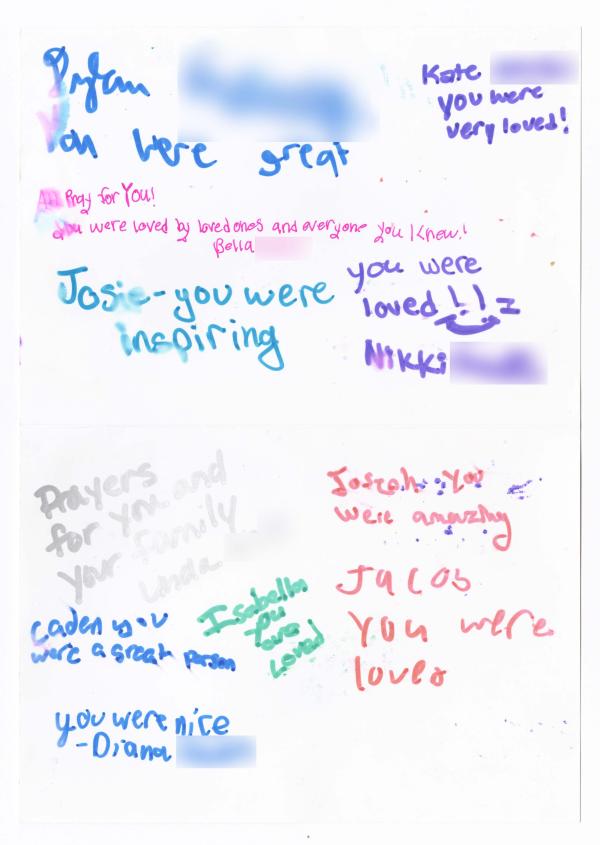 Dylan
You were great
Kate
you were
very loved!
All Pray for You!
You were loved by loved ones and everyone you Knew!
Bella
Josie- you were
inspiring
you were
loved!!
Nikki
Prayers
for you and
your family
Linda
Joseph you
were amazing
Jacob
You were
loved
Isabella
You
are
Loved
caden you
were a great person
you were nice
-Diana